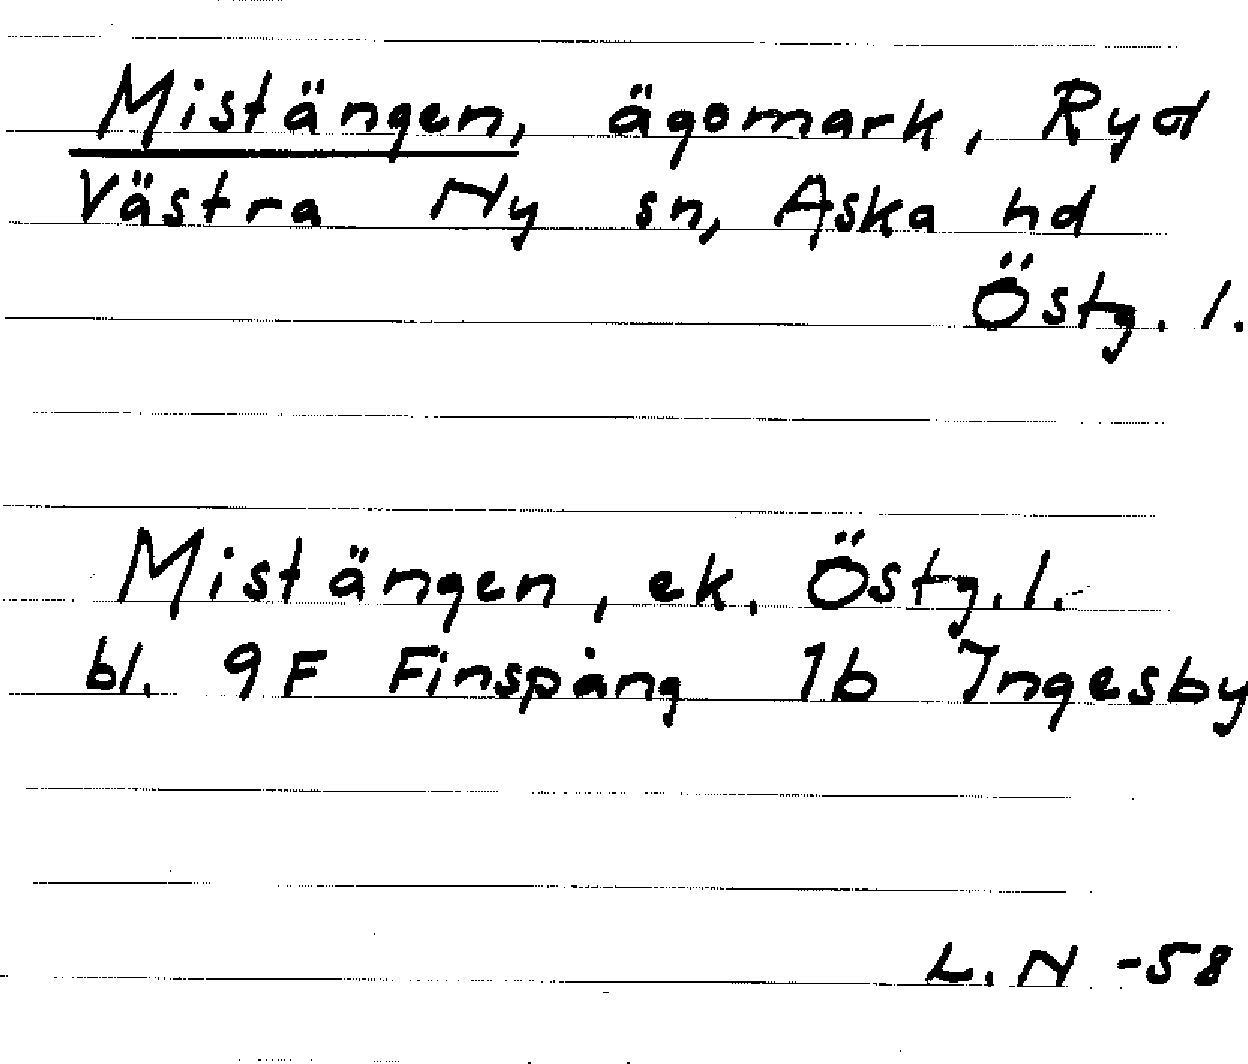 Mistängen, ägomark, Ryd
Västra Ny sn, Aska hd
Östg. l.
Mistängen, ek. Östg. l.
bl. 9F Finspång 1b Ingesby
L. N -58